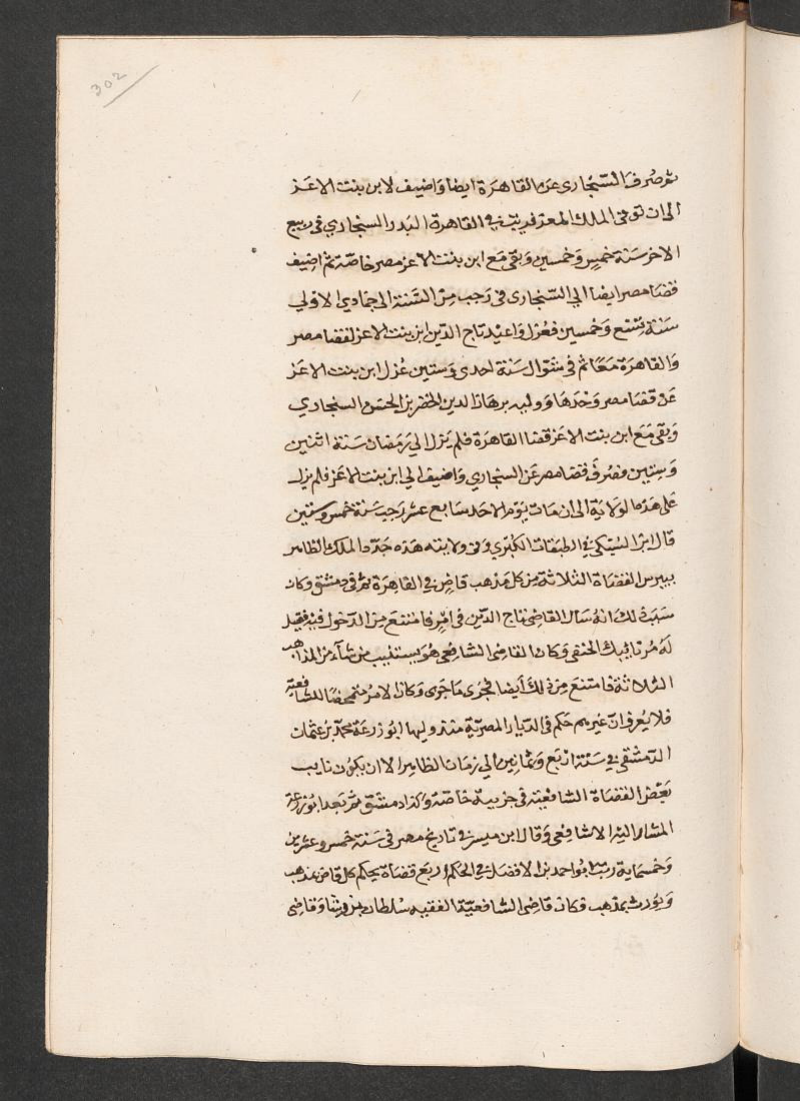 302
ثم صرف السنجاري عن القاهرة ايضا واضيف لابن بنت الاعز
الى ان توفى الملك المعز فريتب في القاهرة البدر السنجاري في ربيع
الاخر سنة خمس وخمسين وبقى مع ابن بنت الاعز مصر خاصة ثم اضيف
قضا مصر ايضا الي السنجارى فى رجب من السنة الى جمادي الاولي
سنة تسع وخمسين فعزل واعيد تاج الدين ابن بنت الاعز لقضا مصر
والقاهرة معا ثم في شوال سنة احدى وستين عزل ابن بنت الاعز
عن قضا مصر وحدها ووليه برهان الدين الخضر بن الحسن السنجاري
وبقى مع ابن بنت الاعز قضا القاهرة فلم يزل الي رمضان سنة اثنين
وستين وصرف قضا مصر عن السنجاري واضيف الي ابن بنت الاعز فلم يزل
على هذه الولاية الى ان مات يوم الاحد سابع عشر رجب سنة خمس وستين
قال ابن السبكي في الطبقات الكبرى وفى ولايته هذه جدد الملك الظاهر
بيبرس القضاة الثلاثة من كل مذهب قاض في القاهرة ثم فى دمشق وكان
سبب ذلك انه سال القاضى تاج الدين فى امر فامتنع من الدخول فيه فقيل
له مر نائبك الحنفى وكان القاضى الشافعي هو يستنيب من شاء من المذاهب
الثلاثة فامتنع من ذلك ايضا فجرى ما جرى وكان الامر متمحضا للشافعية
فلا يعرف ان غيرهم حكم فى الديار المصرية منذ وليها ابو زرعة محمد بن عثمان
الدمشقى في سنة اربع وثمانين الي زمان الظاهر الا ان يكون نايب
بعض القضاة الشافعية فى جزيية خاصة وكذا دمشق ثم بعد ابو زرعة
المشار اليه الا شافعى وقال ابن ميسر في تاريخ مصر فى سنة خمس وعشرين
وخمسماية رتب ابو احمد بن الافضل في الحكم اربع قضاة يحكم كل قاض بمذهبه
ويورث بمذهبه فكان قاضى الشافعية الفقيه سلطان بن رشا وقاضى